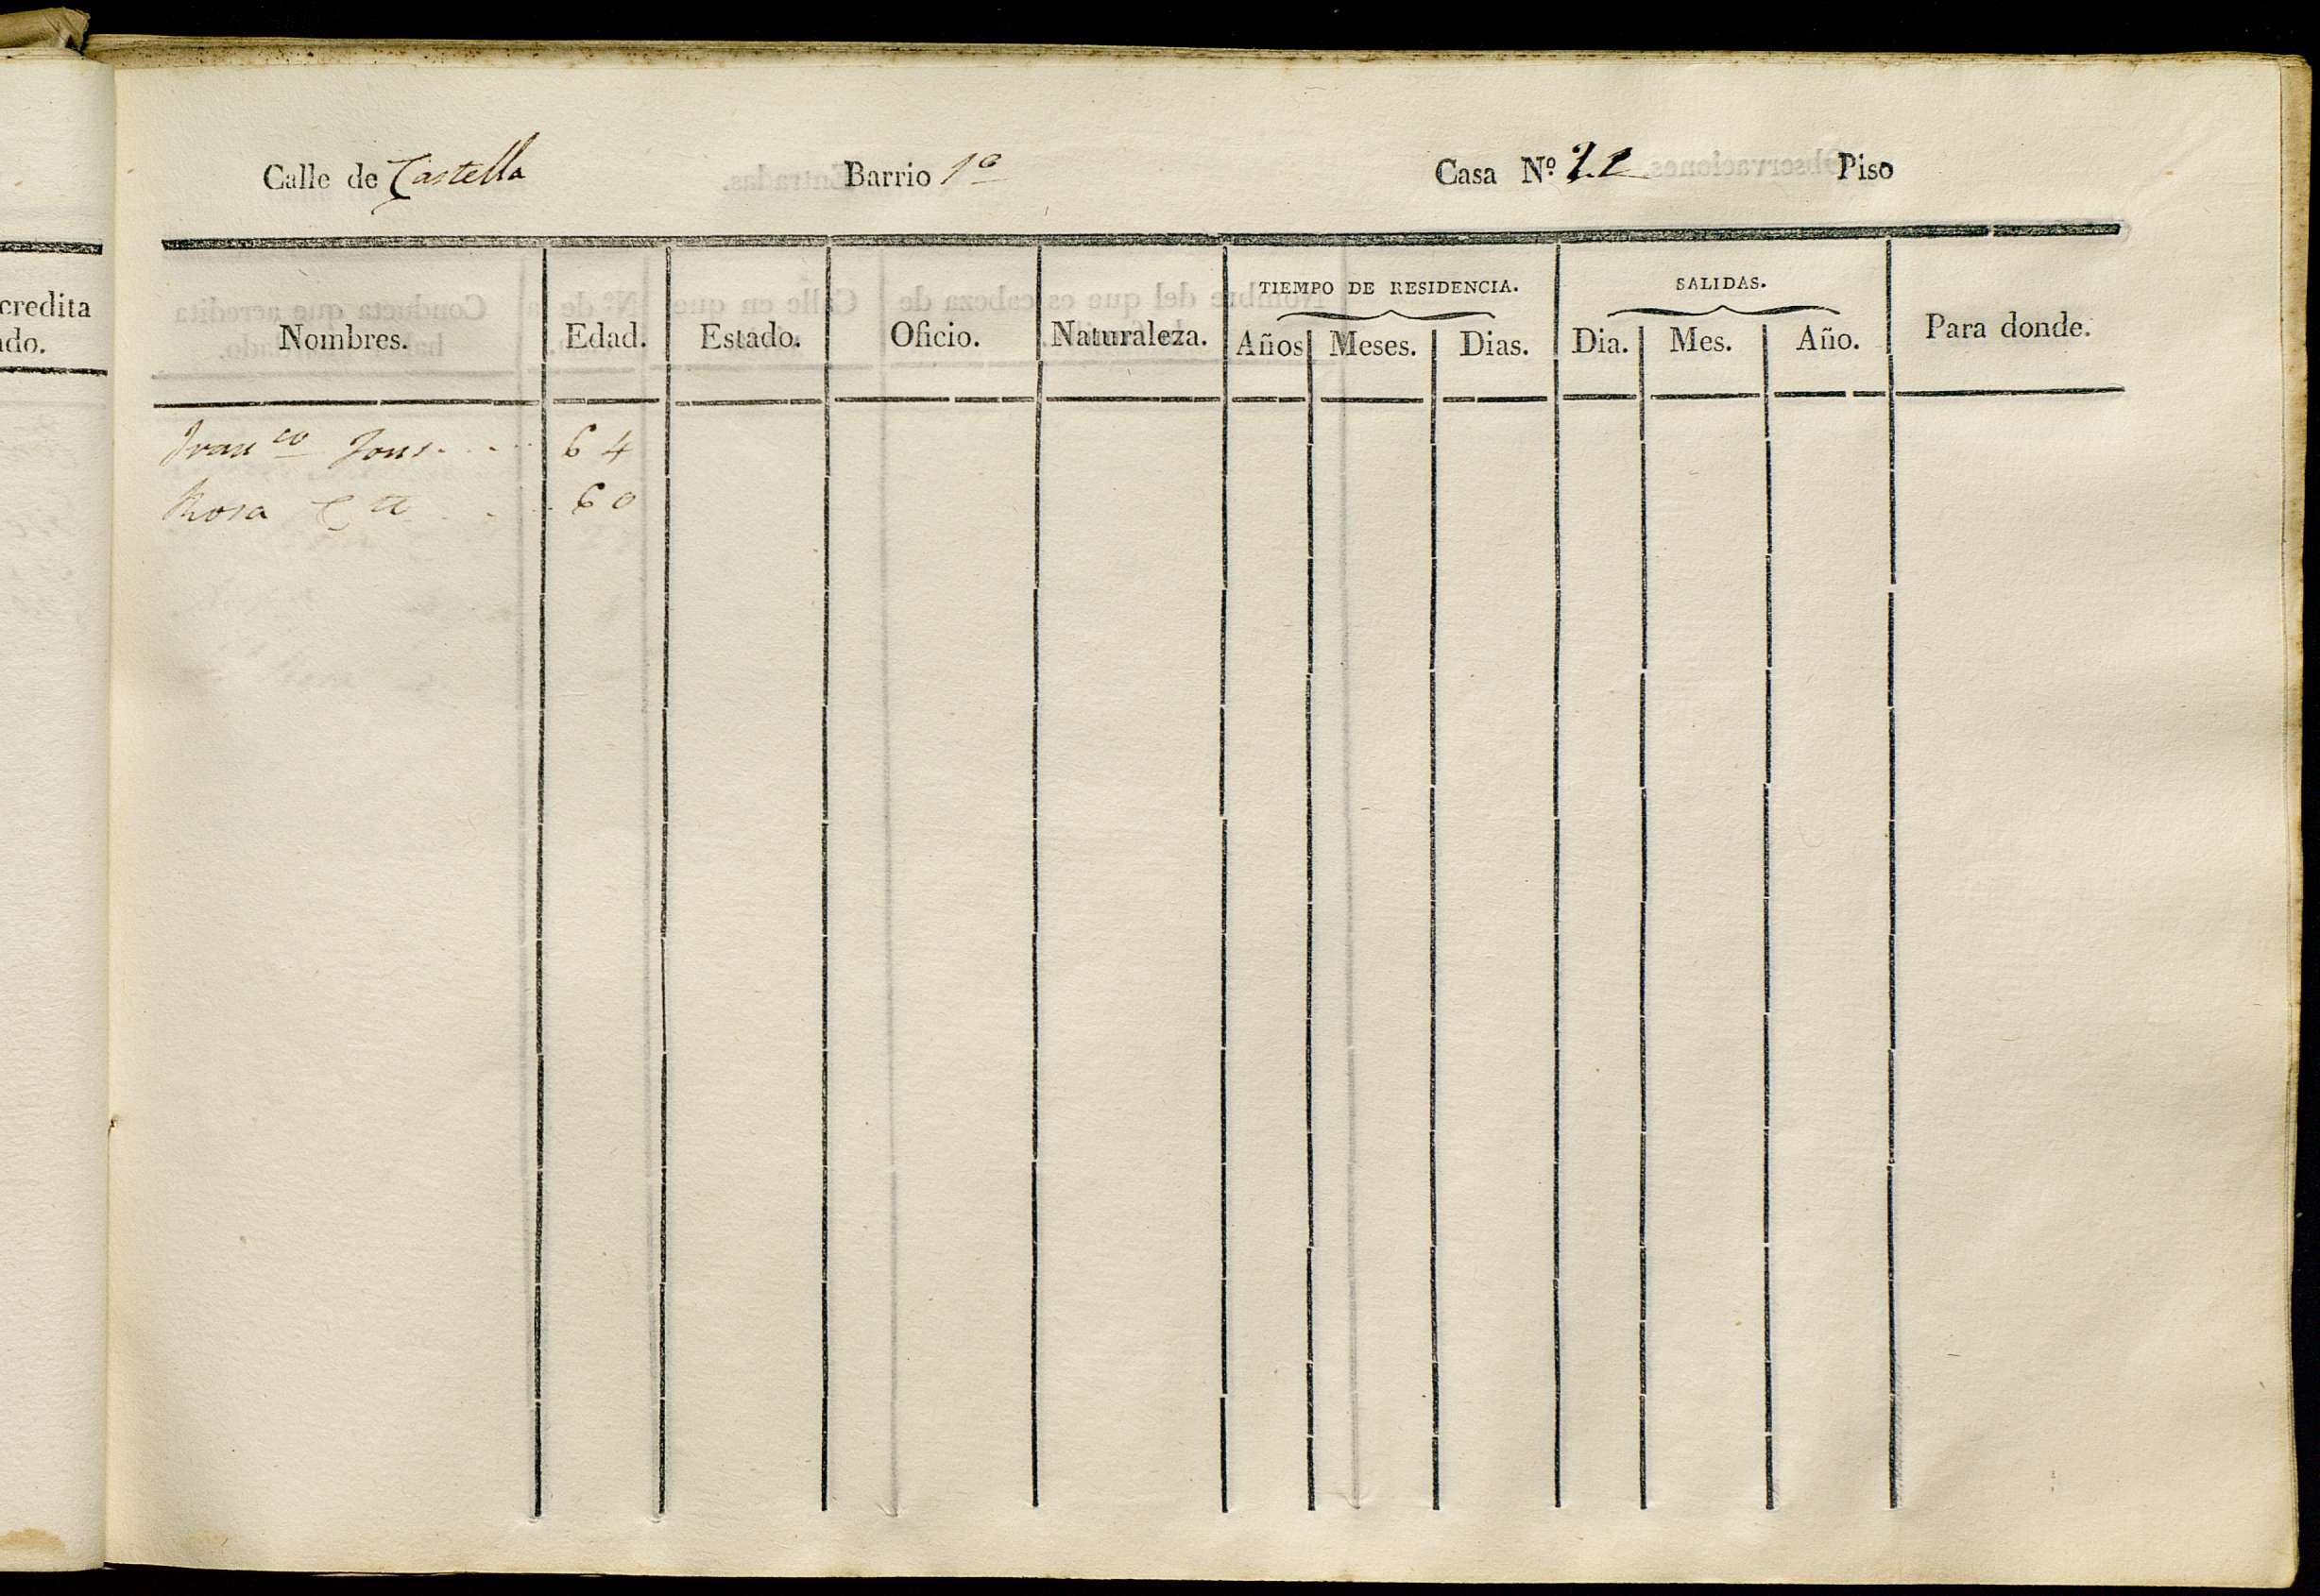 Calle de Castella Barrio 1º Casa Nº 22 Piso
credita
do.
Nombres. Edad. Estado. Oficio. Naturaleza. TIEMPO DE RESIDENCIA. Años Meses. Dias. SALIDAS. Dia. Mes. Año. Para donde.
Franco 64
Rosa 60